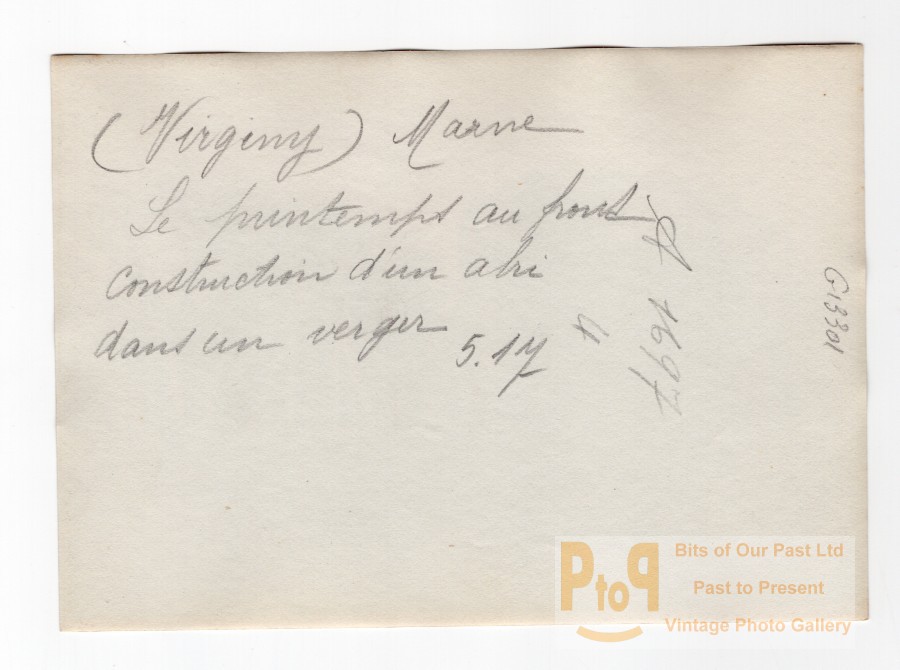 (Virginy) Marne
Le printemps au front
construction d'un abri
dans un verger
5.17
4
A 1697
G13301
PtoP
Bits of Our Past Ltd
Past to Present
Vintage Photo Gallery